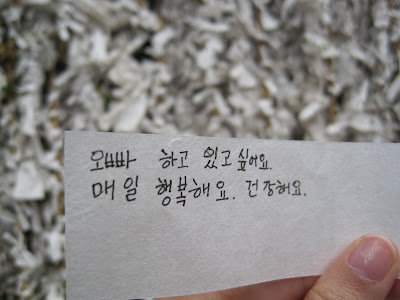 오빠 하고 있고 싶어요.
매일 행복해요. 건강해요.